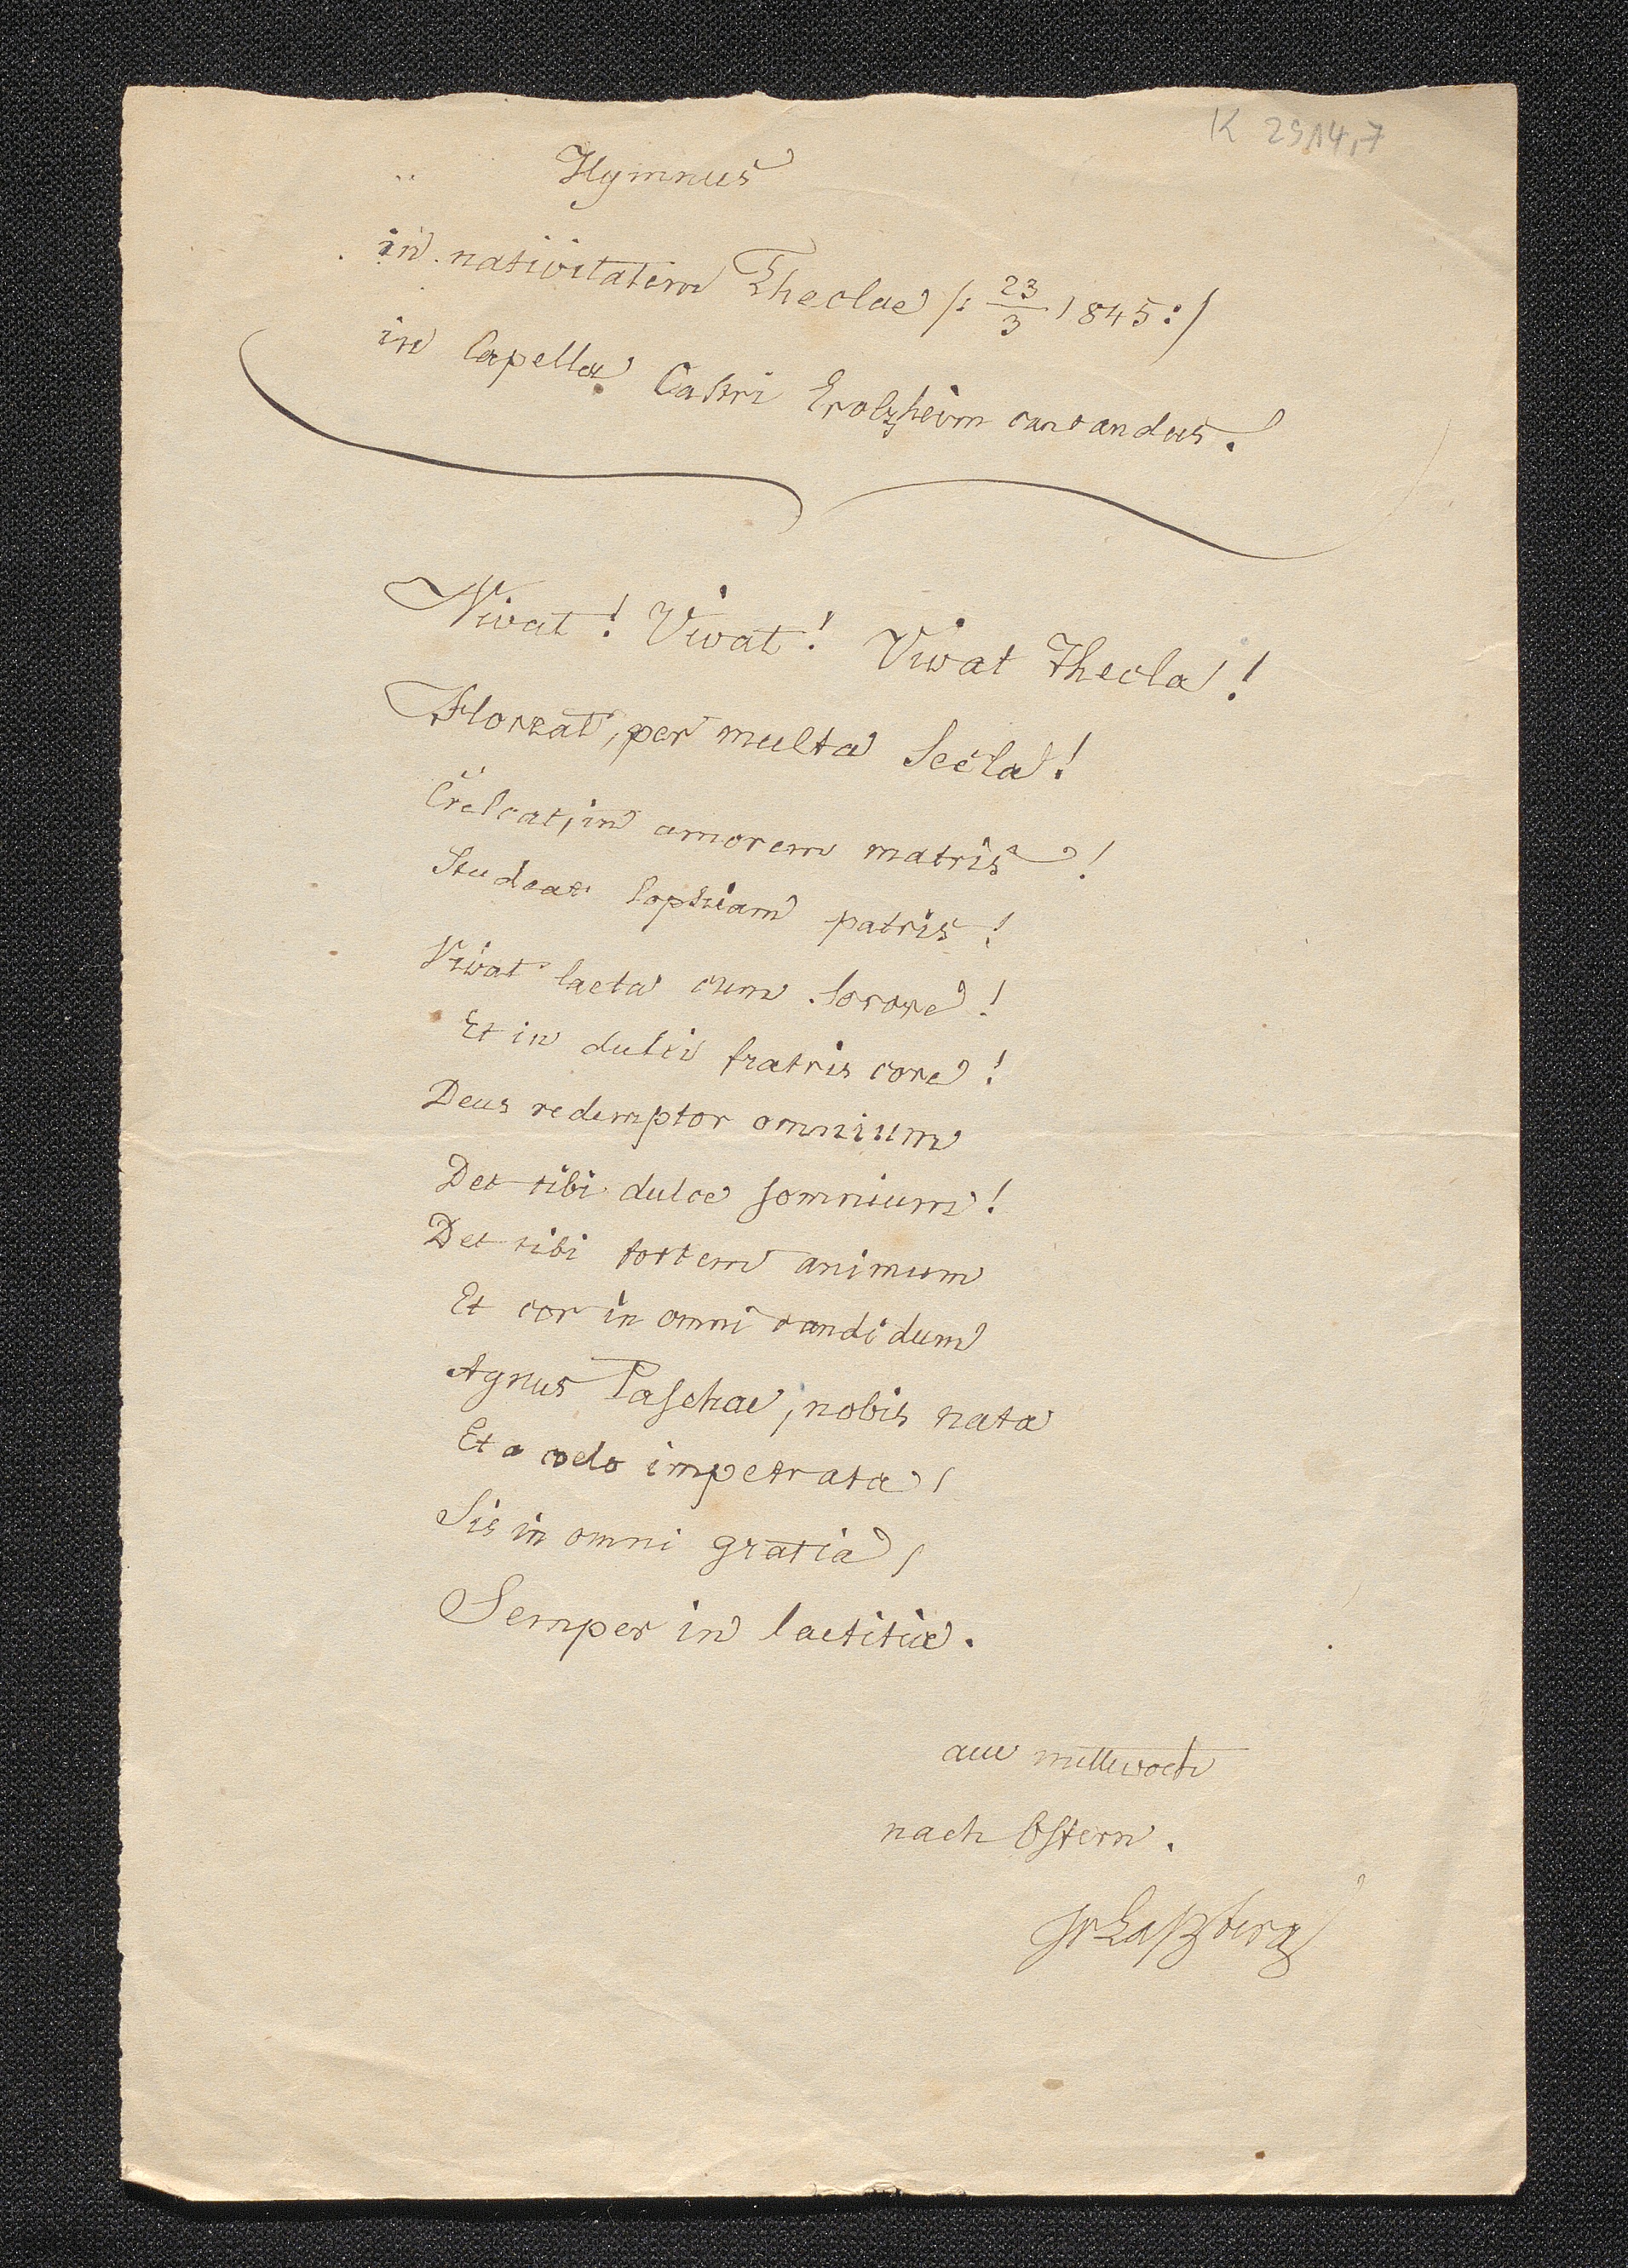 K 2914,7
Hymnus
in nativitatem Theclae /: 23/3 1845 :/
in Capella Castri Erolzheim cantandus.
Vivat! Vivat! Vivat Thecla!
Floreat, per multa Secla!
Crescat, in amorem matris!
Studeat Sophiam patris!
Vivat laeta cum Sorore!
Et in dulci fratris core!
Deus redemptor omnium
Det tibi dulce somnium!
Det tibi fortem animum
Et cor in omni candidum
Agnus Paschae, nobis nata
Et a coelo impetrata,
Sis in omni gratia,
Semper in laetitia.
am mittwoch
nach Ostern.
JvLaßberg